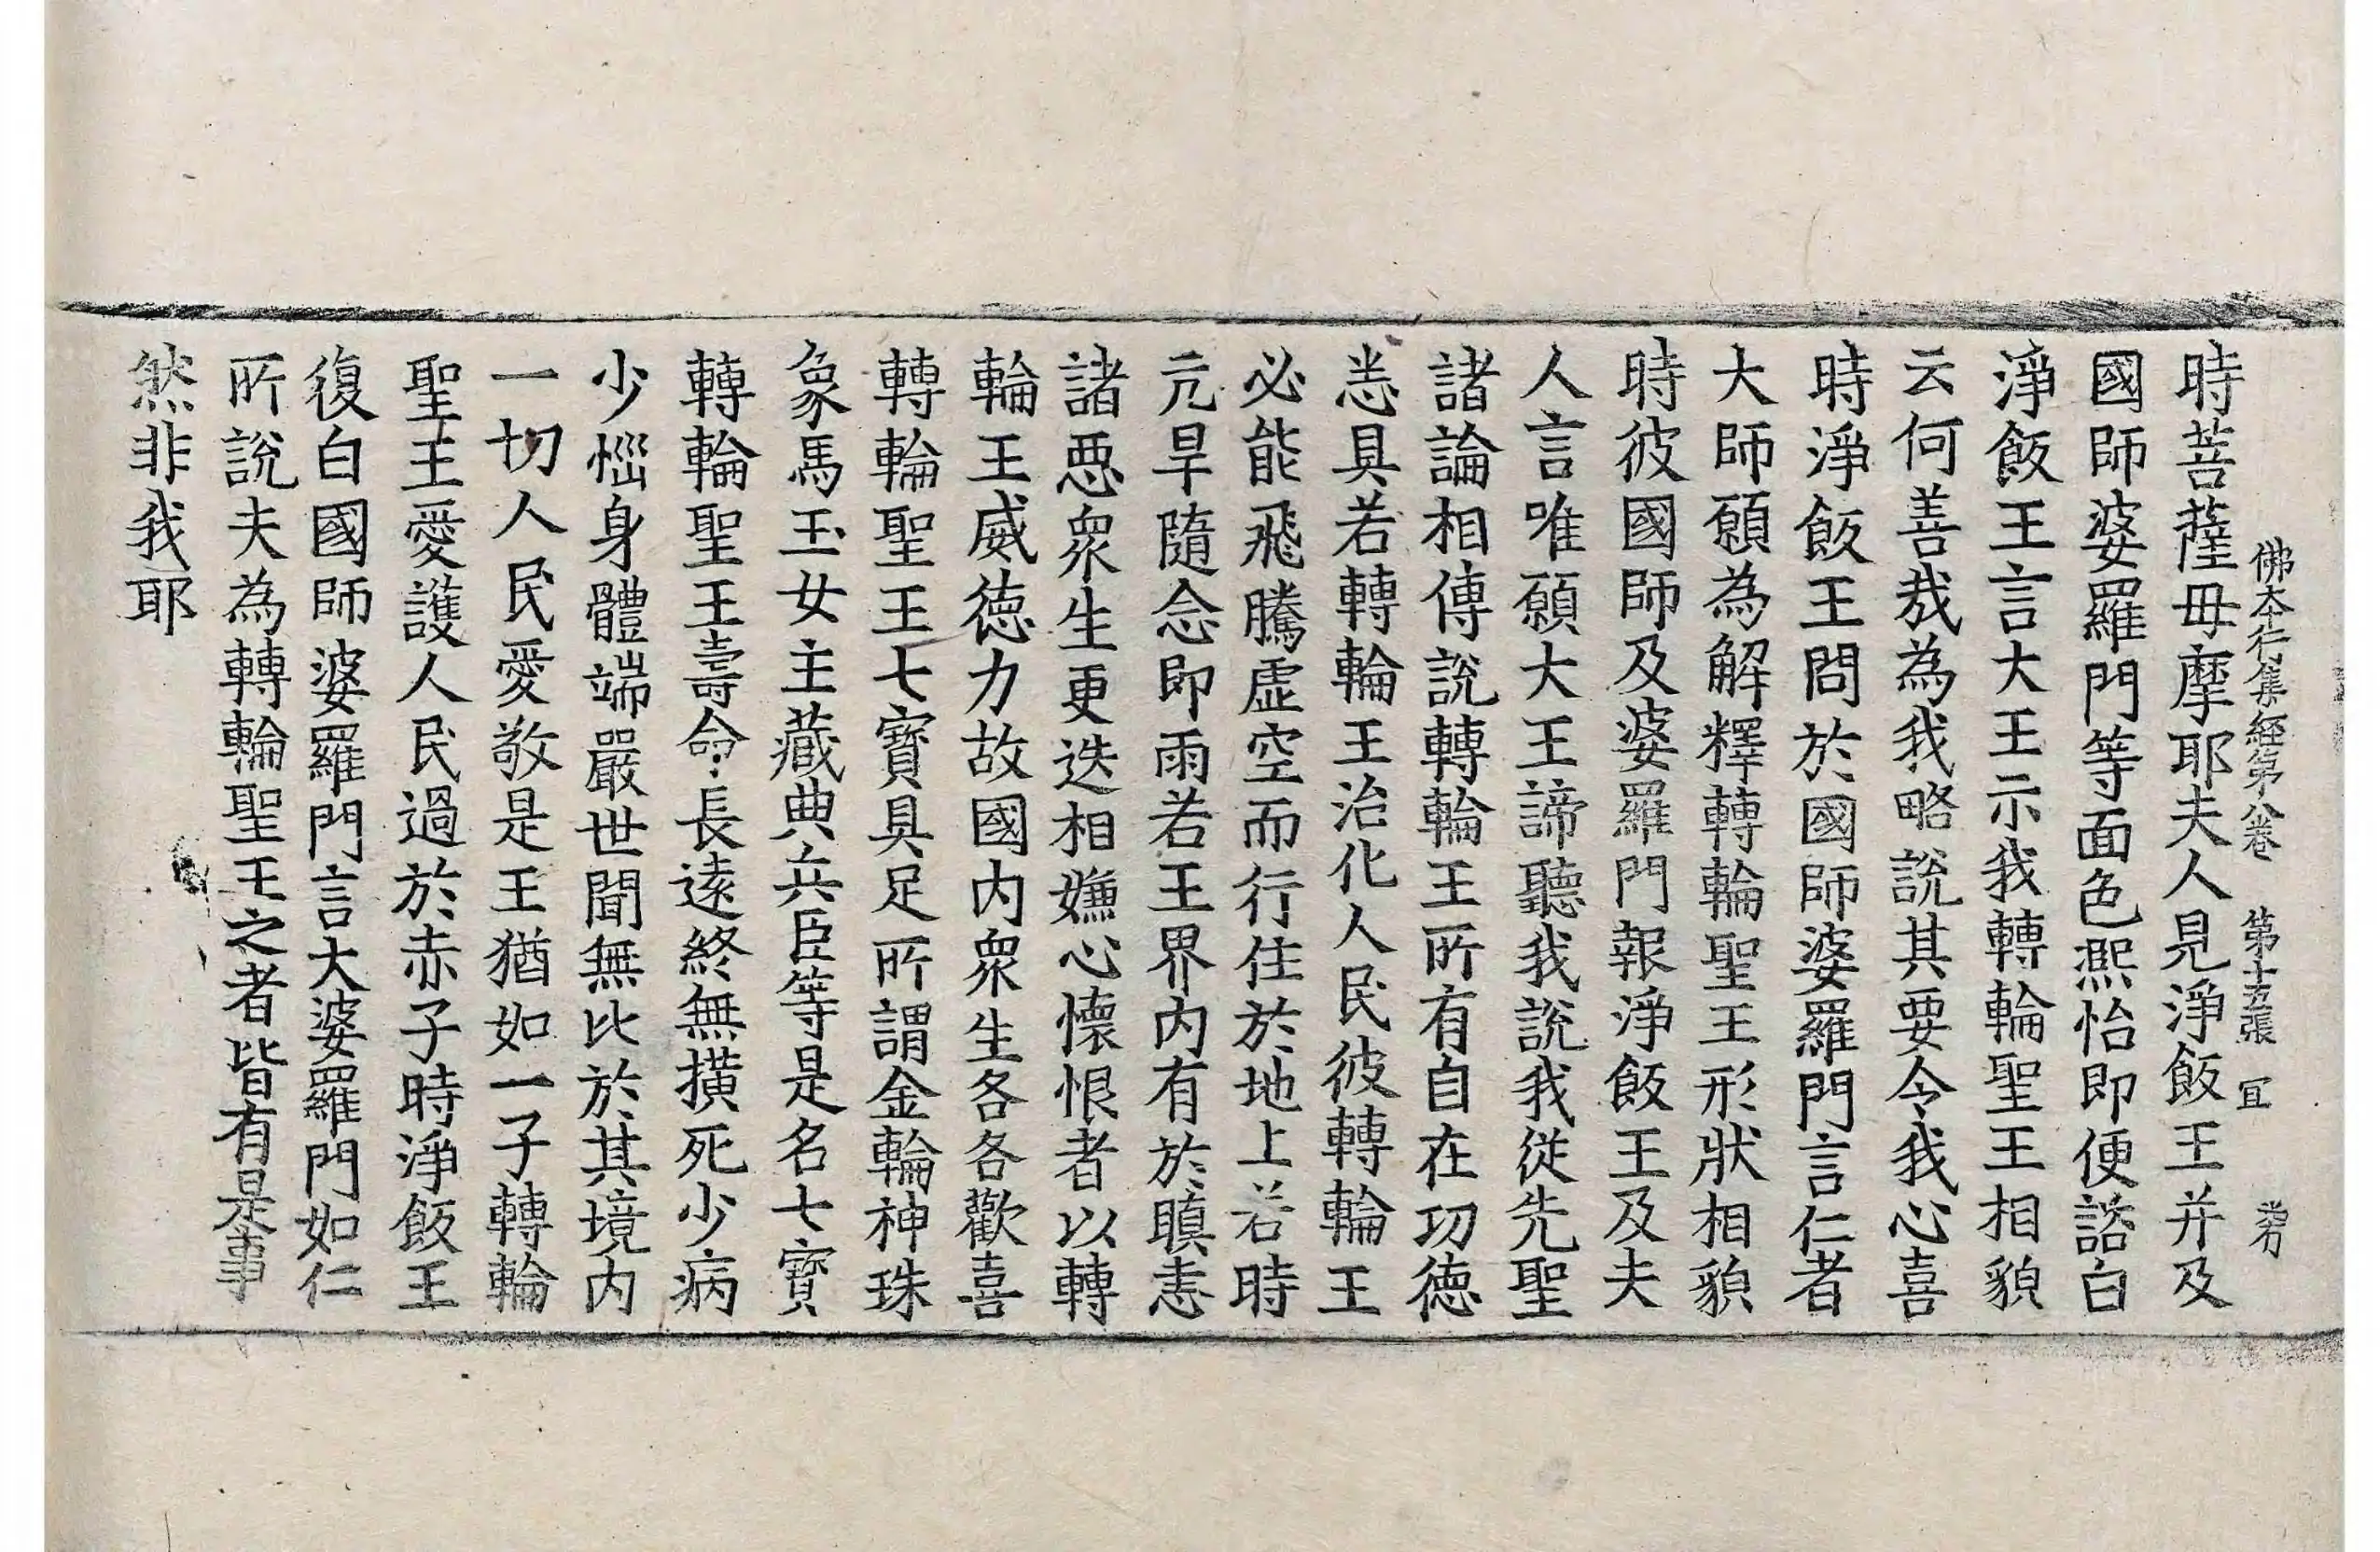 佛本行集經第八卷　第十五張　冝
時菩薩母摩耶夫人見淨飯王并及
國師婆羅門等面色熈怡即便諮白
淨飯王言大王示我轉輪聖王相貌
云何善㦲為我略說其要令我心喜
時淨飯王問於國師婆羅門言仁者
大師願為解釋轉輪聖王形狀相貌
時彼國師及婆羅門報淨飯王及夫
人言唯願大王諦聽我說我從先聖
諸論相傳說轉輪王所有自在功德
悉具若轉輪王治化人民彼轉輪王
必能飛騰虛空而行住於地上若時
亢旱隨念即雨若王界內有於瞋恚
諸惡衆生更迭相嫌心懷恨者以轉
輪王威德力故國內衆生各各歡喜
轉輪聖王七寶具足所謂金輪神珠
象馬玉女主藏典兵臣等是名七寶
轉輪聖王壽命長遠終無撗死少病
少惱身體端嚴世閒無比於其境內
一切人民愛敬是王猶如一子轉輪
聖王愛護人民過於赤子時淨飯王
復白國師婆羅門言大婆羅門如仁
所說夫為轉輪聖王之者皆有是事
然非我耶